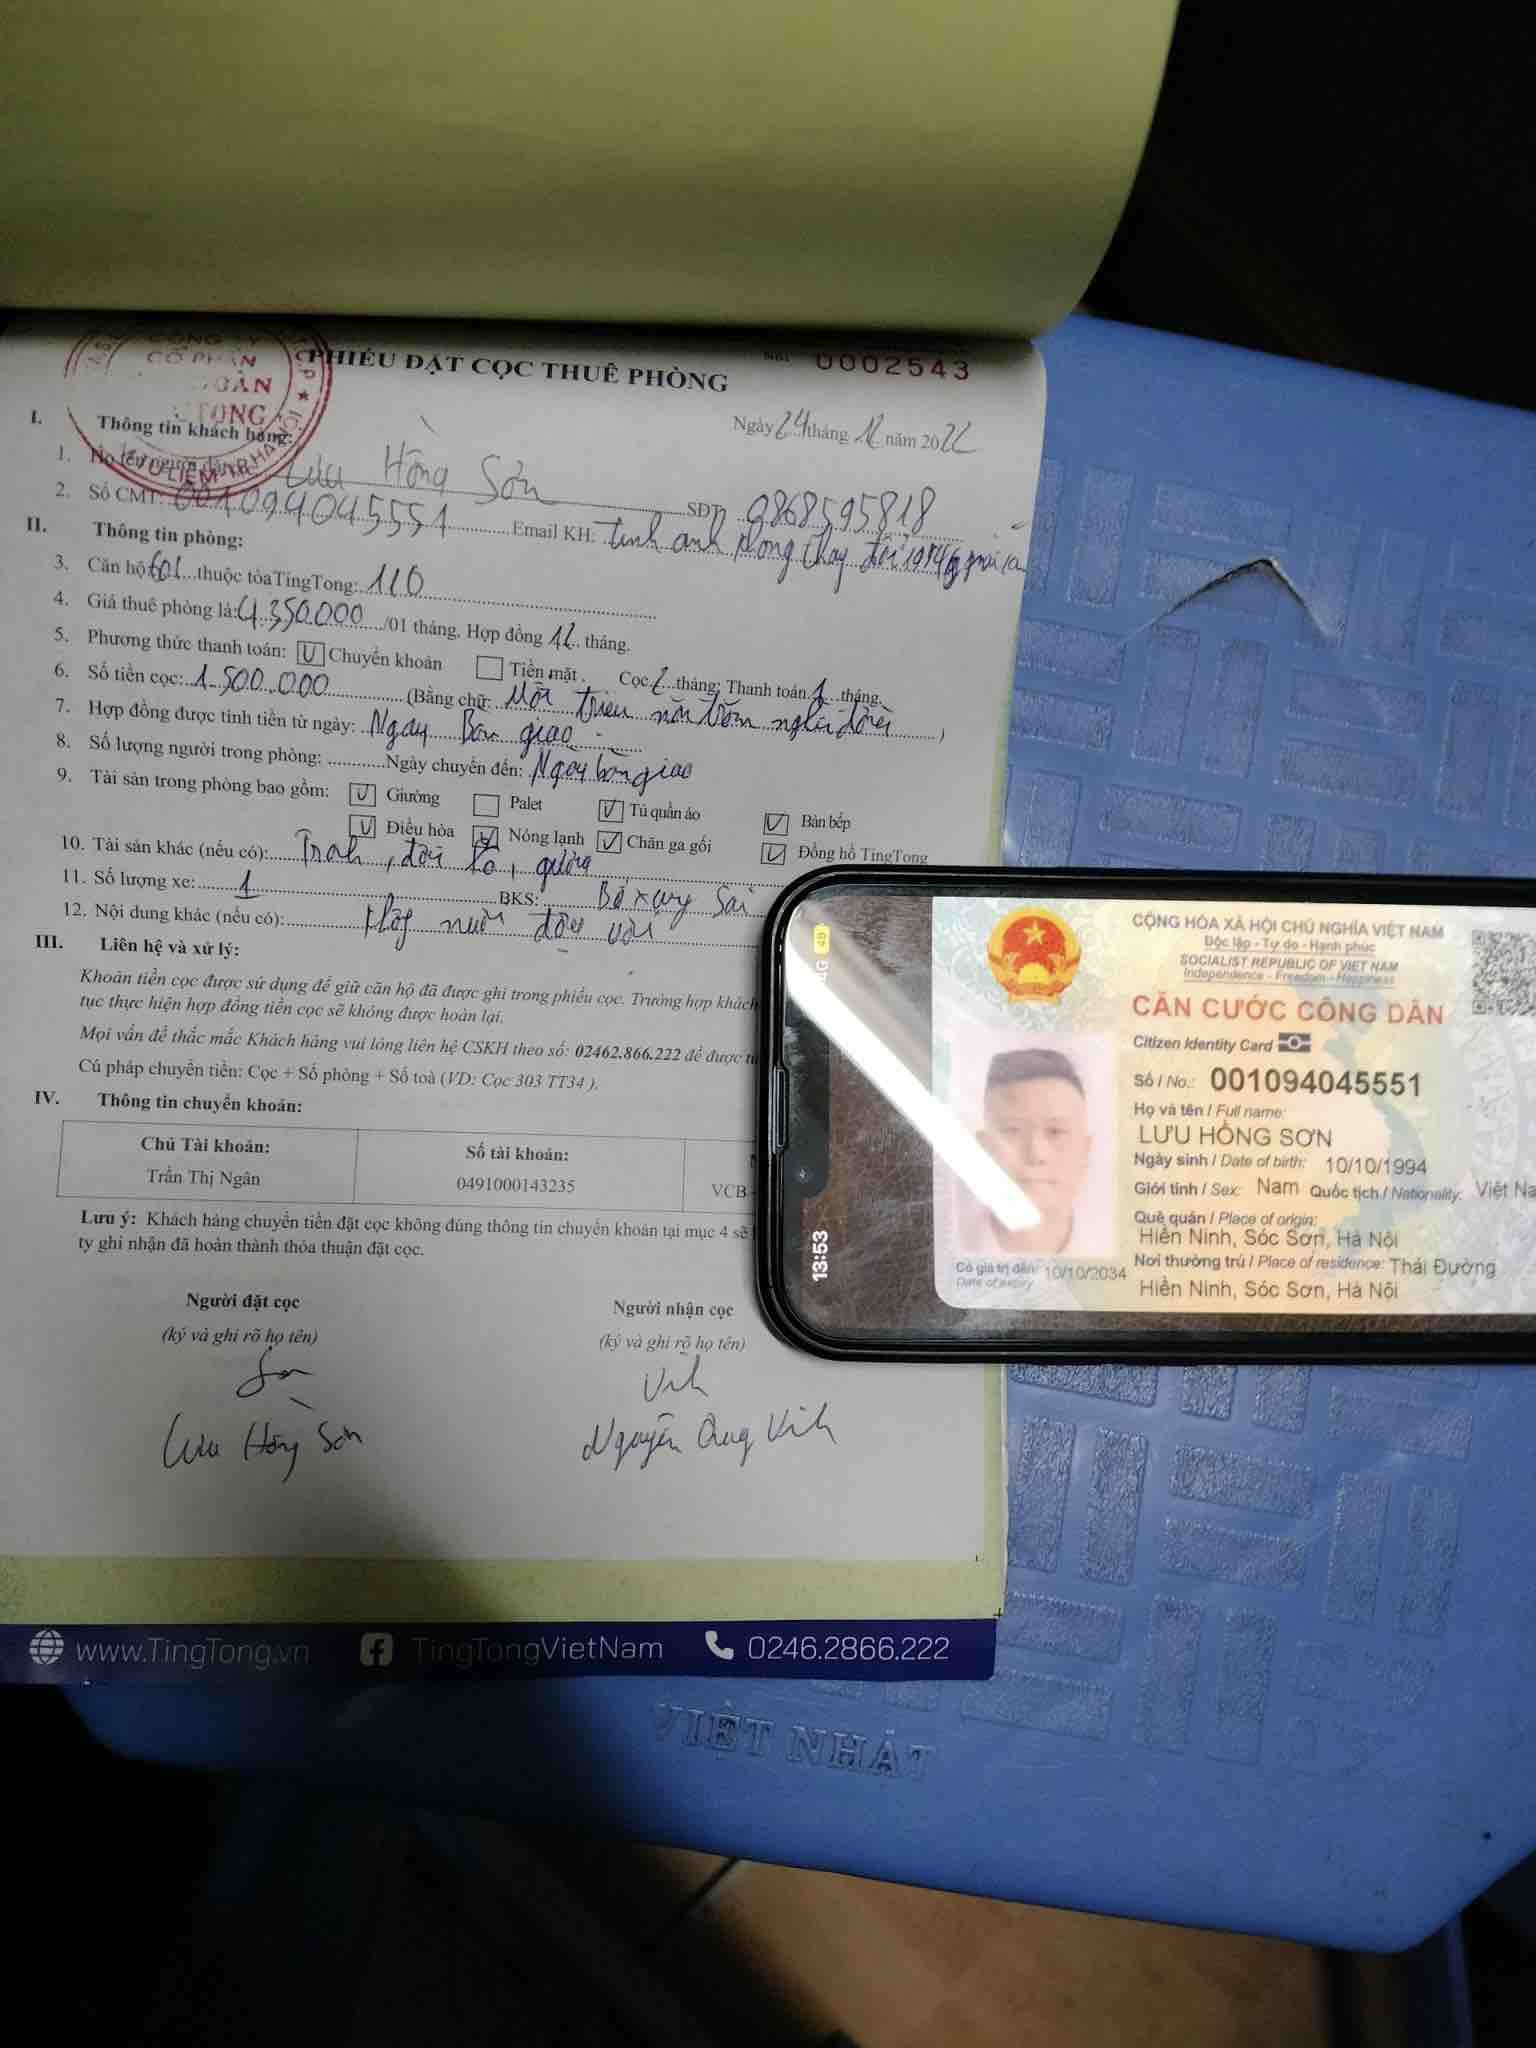 CỔ PHẦN
TONG
TỪ LIÊM TP. HÀ NỘI
PHIẾU ĐẶT CỌC THUÊ PHÒNG
No: 0002543
Ngày 24 tháng 12 năm 2022
I. Thông tin khách hàng:
1. Họ tên người đặt cọc: Lưu Hồng Sơn SĐT: 0868595818
2. Số CMT: 001094045551 Email KH: tinh anh phong thay đổi 1994@gmail.com
II. Thông tin phòng:
3. Căn hộ 601 thuộc tòa TingTong: 110
4. Giá thuê phòng là: 4.350.000 /01 tháng, Hợp đồng 12 tháng.
5. Phương thức thanh toán: V Chuyển khoản Tiền mặt. Cọc 2 tháng; Thanh toán 1 tháng.
6. Số tiền cọc: 1.500.000 (Bằng chữ: Một triệu năm trăm nghìn đồng)
7. Hợp đồng được tính tiền từ ngày: Ngay Bàn giao
8. Số lượng người trong phòng: Ngày chuyển đến: Ngay bàn giao
9. Tài sản trong phòng bao gồm: V Giường Palet V Tủ quần áo V Bàn bếp
V Điều hòa V Nóng lạnh V Chăn ga gối V Đồng hồ TingTong
10. Tài sản khác (nếu có): Tranh, đôn, gương
11. Số lượng xe: 1 BKS: Bổ xung sau
12. Nội dung khác (nếu có): Không nuôi động vật
III. Liên hệ và xử lý:
Khoản tiền cọc được sử dụng để giữ căn hộ đã được ghi trong phiếu cọc. Trường hợp khách
tục thực hiện hợp đồng tiền cọc sẽ không được hoàn lại.
Mọi vấn đề thắc mắc Khách hàng vui lòng liên hệ CSKH theo số: 02462.866.222 để được
Cú pháp chuyển tiền: Cọc + Số phòng + Số toà (VD: Cọc 303 TT34 ).
IV. Thông tin chuyển khoản:
Chủ Tài khoản: Số tài khoản:
Trần Thị Ngân 0491000143235 VCB -
Lưu ý: Khách hàng chuyển tiền đặt cọc không đúng thông tin chuyển khoản tại mục 4 sẽ
ty ghi nhận đã hoàn thành thỏa thuận đặt cọc.
Người đặt cọc Người nhận cọc
(ký và ghi rõ họ tên) (ký và ghi rõ họ tên)
Sơn Vinh
Lưu Hồng Sơn Nguyễn Quang Vinh
www.TingTong.vn TingTongVietNam 0246.2866.222
VIỆT NHẬT
4G 49
13:53
CỘNG HÒA XÃ HỘI CHỦ NGHĨA VIỆT NAM
Độc lập - Tự do - Hạnh phúc
SOCIALIST REPUBLIC OF VIET NAM
Independence - Freedom - Happiness
CĂN CƯỚC CÔNG DÂN
Citizen Identity Card
Số / No.: 001094045551
Họ và tên / Full name:
LƯU HỒNG SƠN
Ngày sinh / Date of birth: 10/10/1994
Giới tính / Sex: Nam Quốc tịch / Nationality: Việt Na
Quê quán / Place of origin:
Hiền Ninh, Sóc Sơn, Hà Nội
Nơi thường trú / Place of residence: Thái Đường
Hiền Ninh, Sóc Sơn, Hà Nội
Có giá trị đến: 10/10/2034
Date of expiry